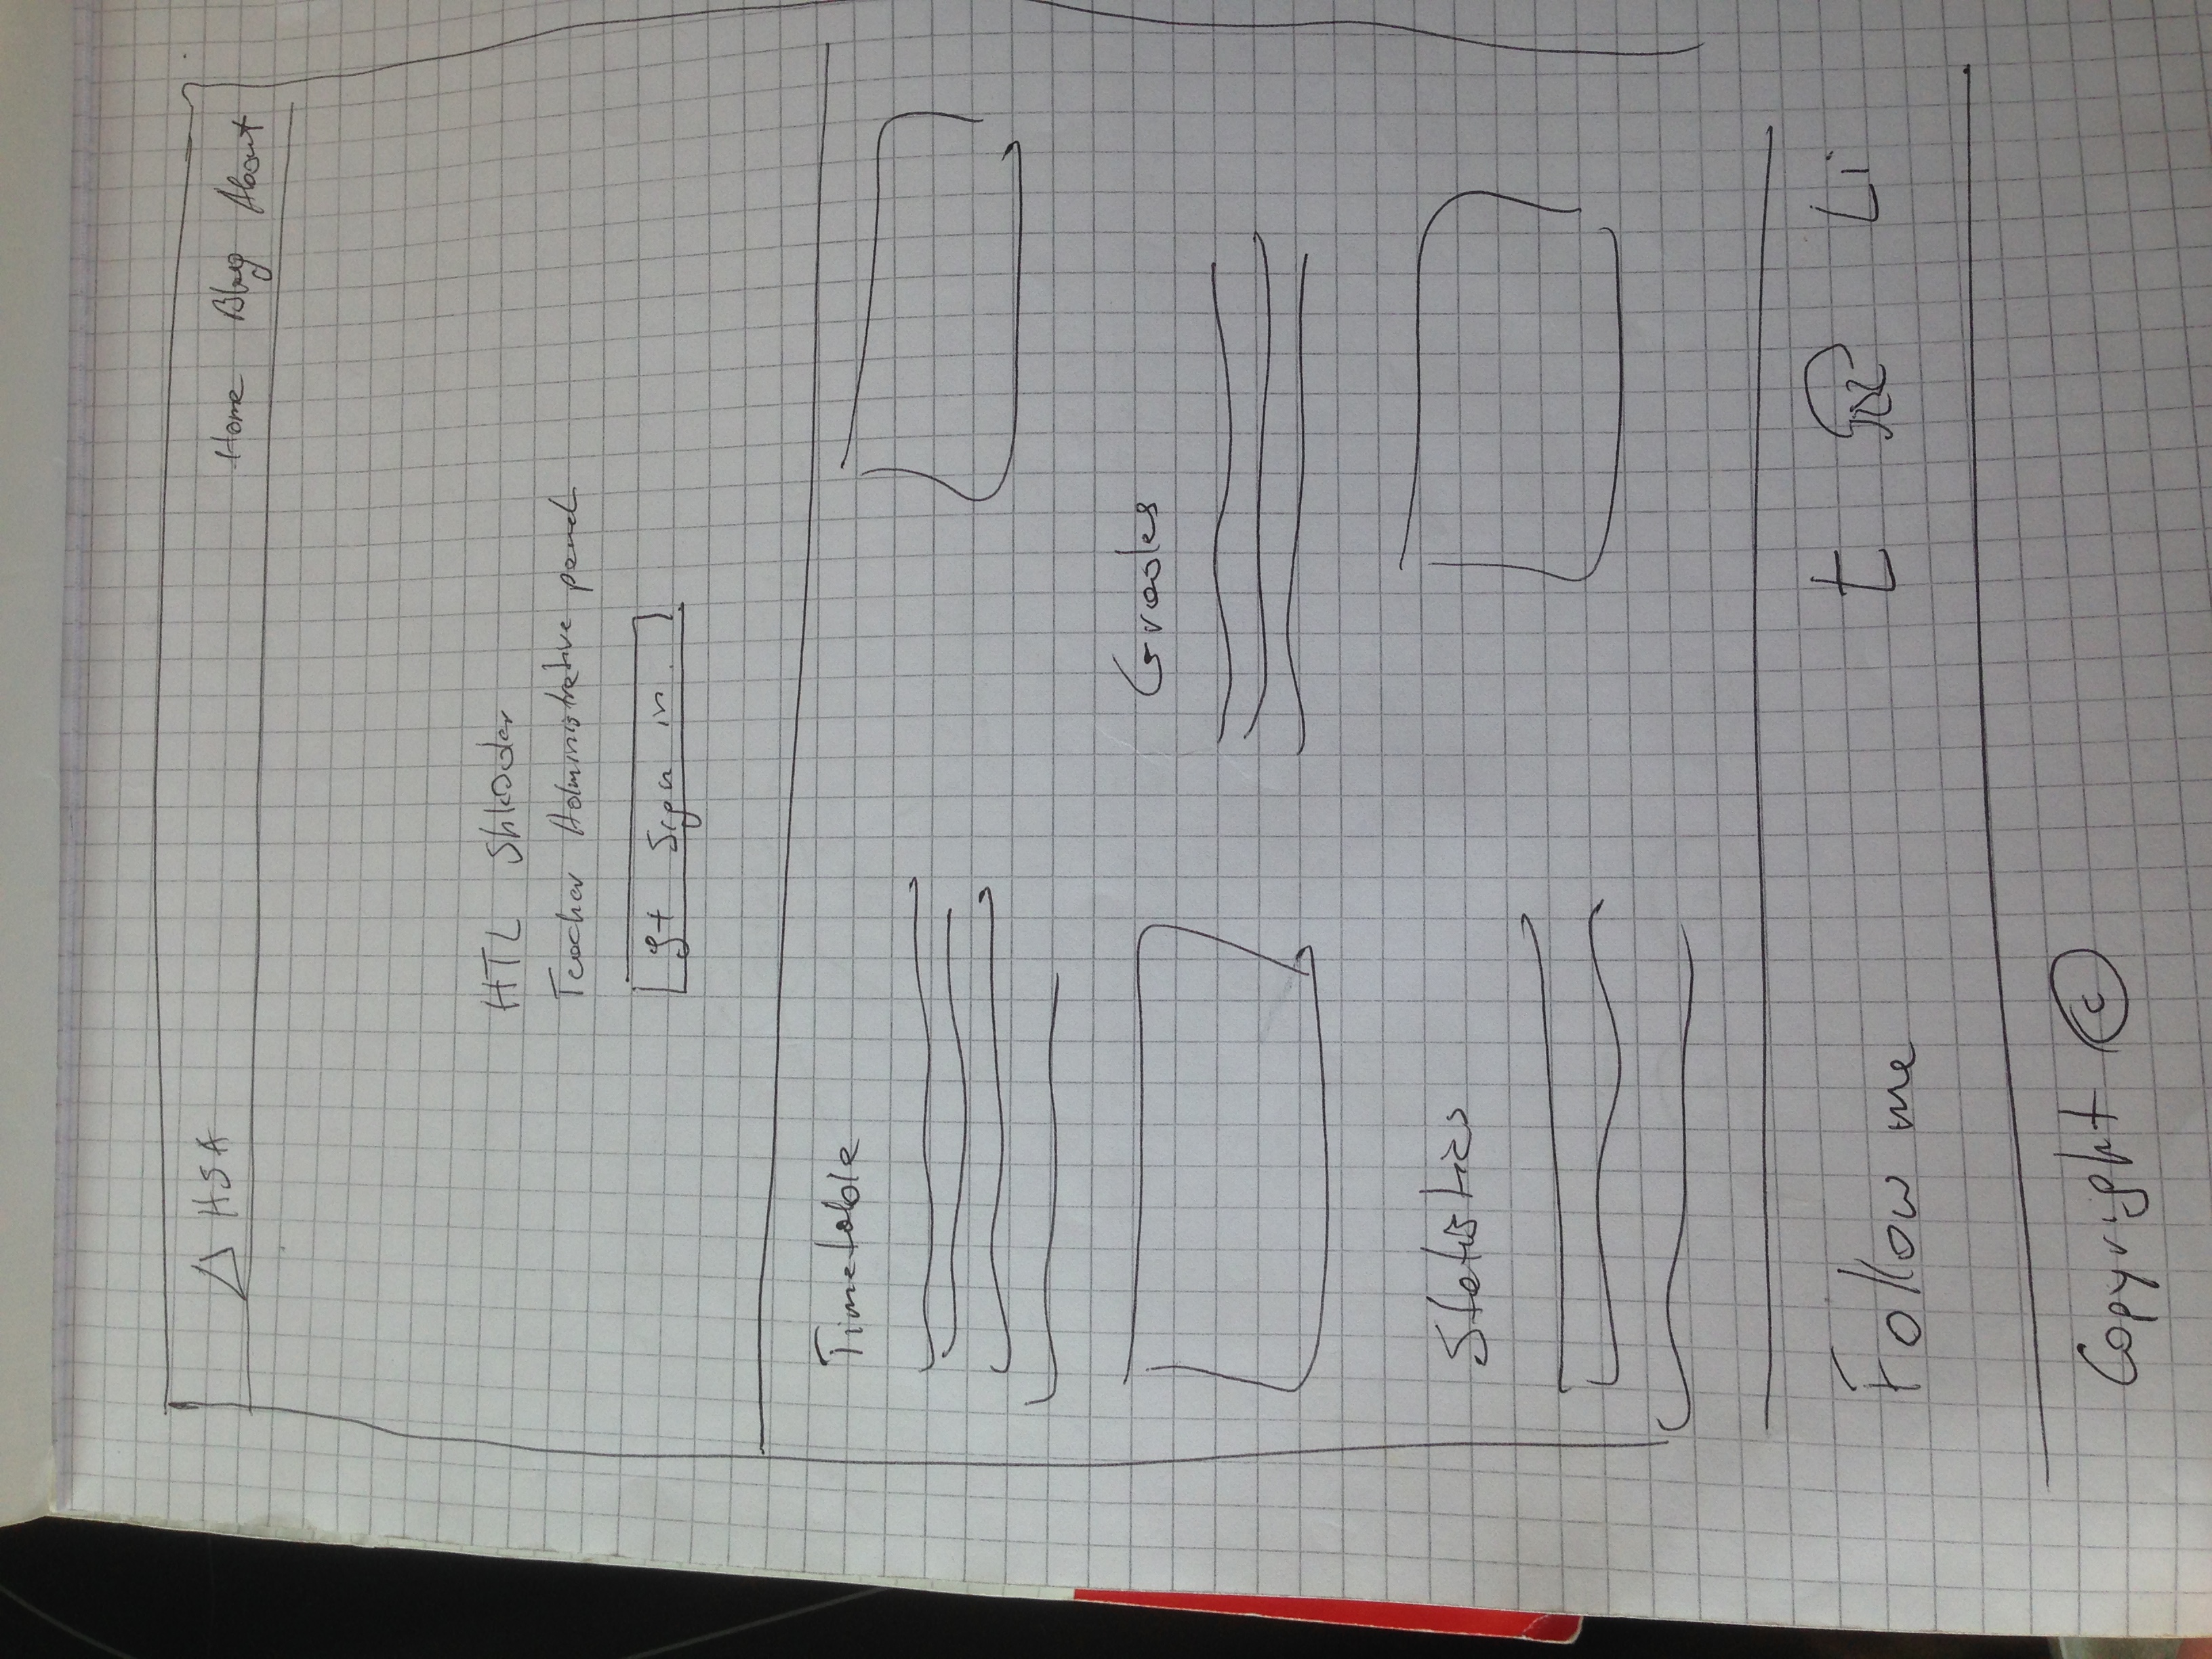 HSA
Home Blog About
HTL Shkoder
Teacher Administrative panel
g+ Sign in
Timetable
Grades
Statistics
Follow me
t Li
Copyright ©